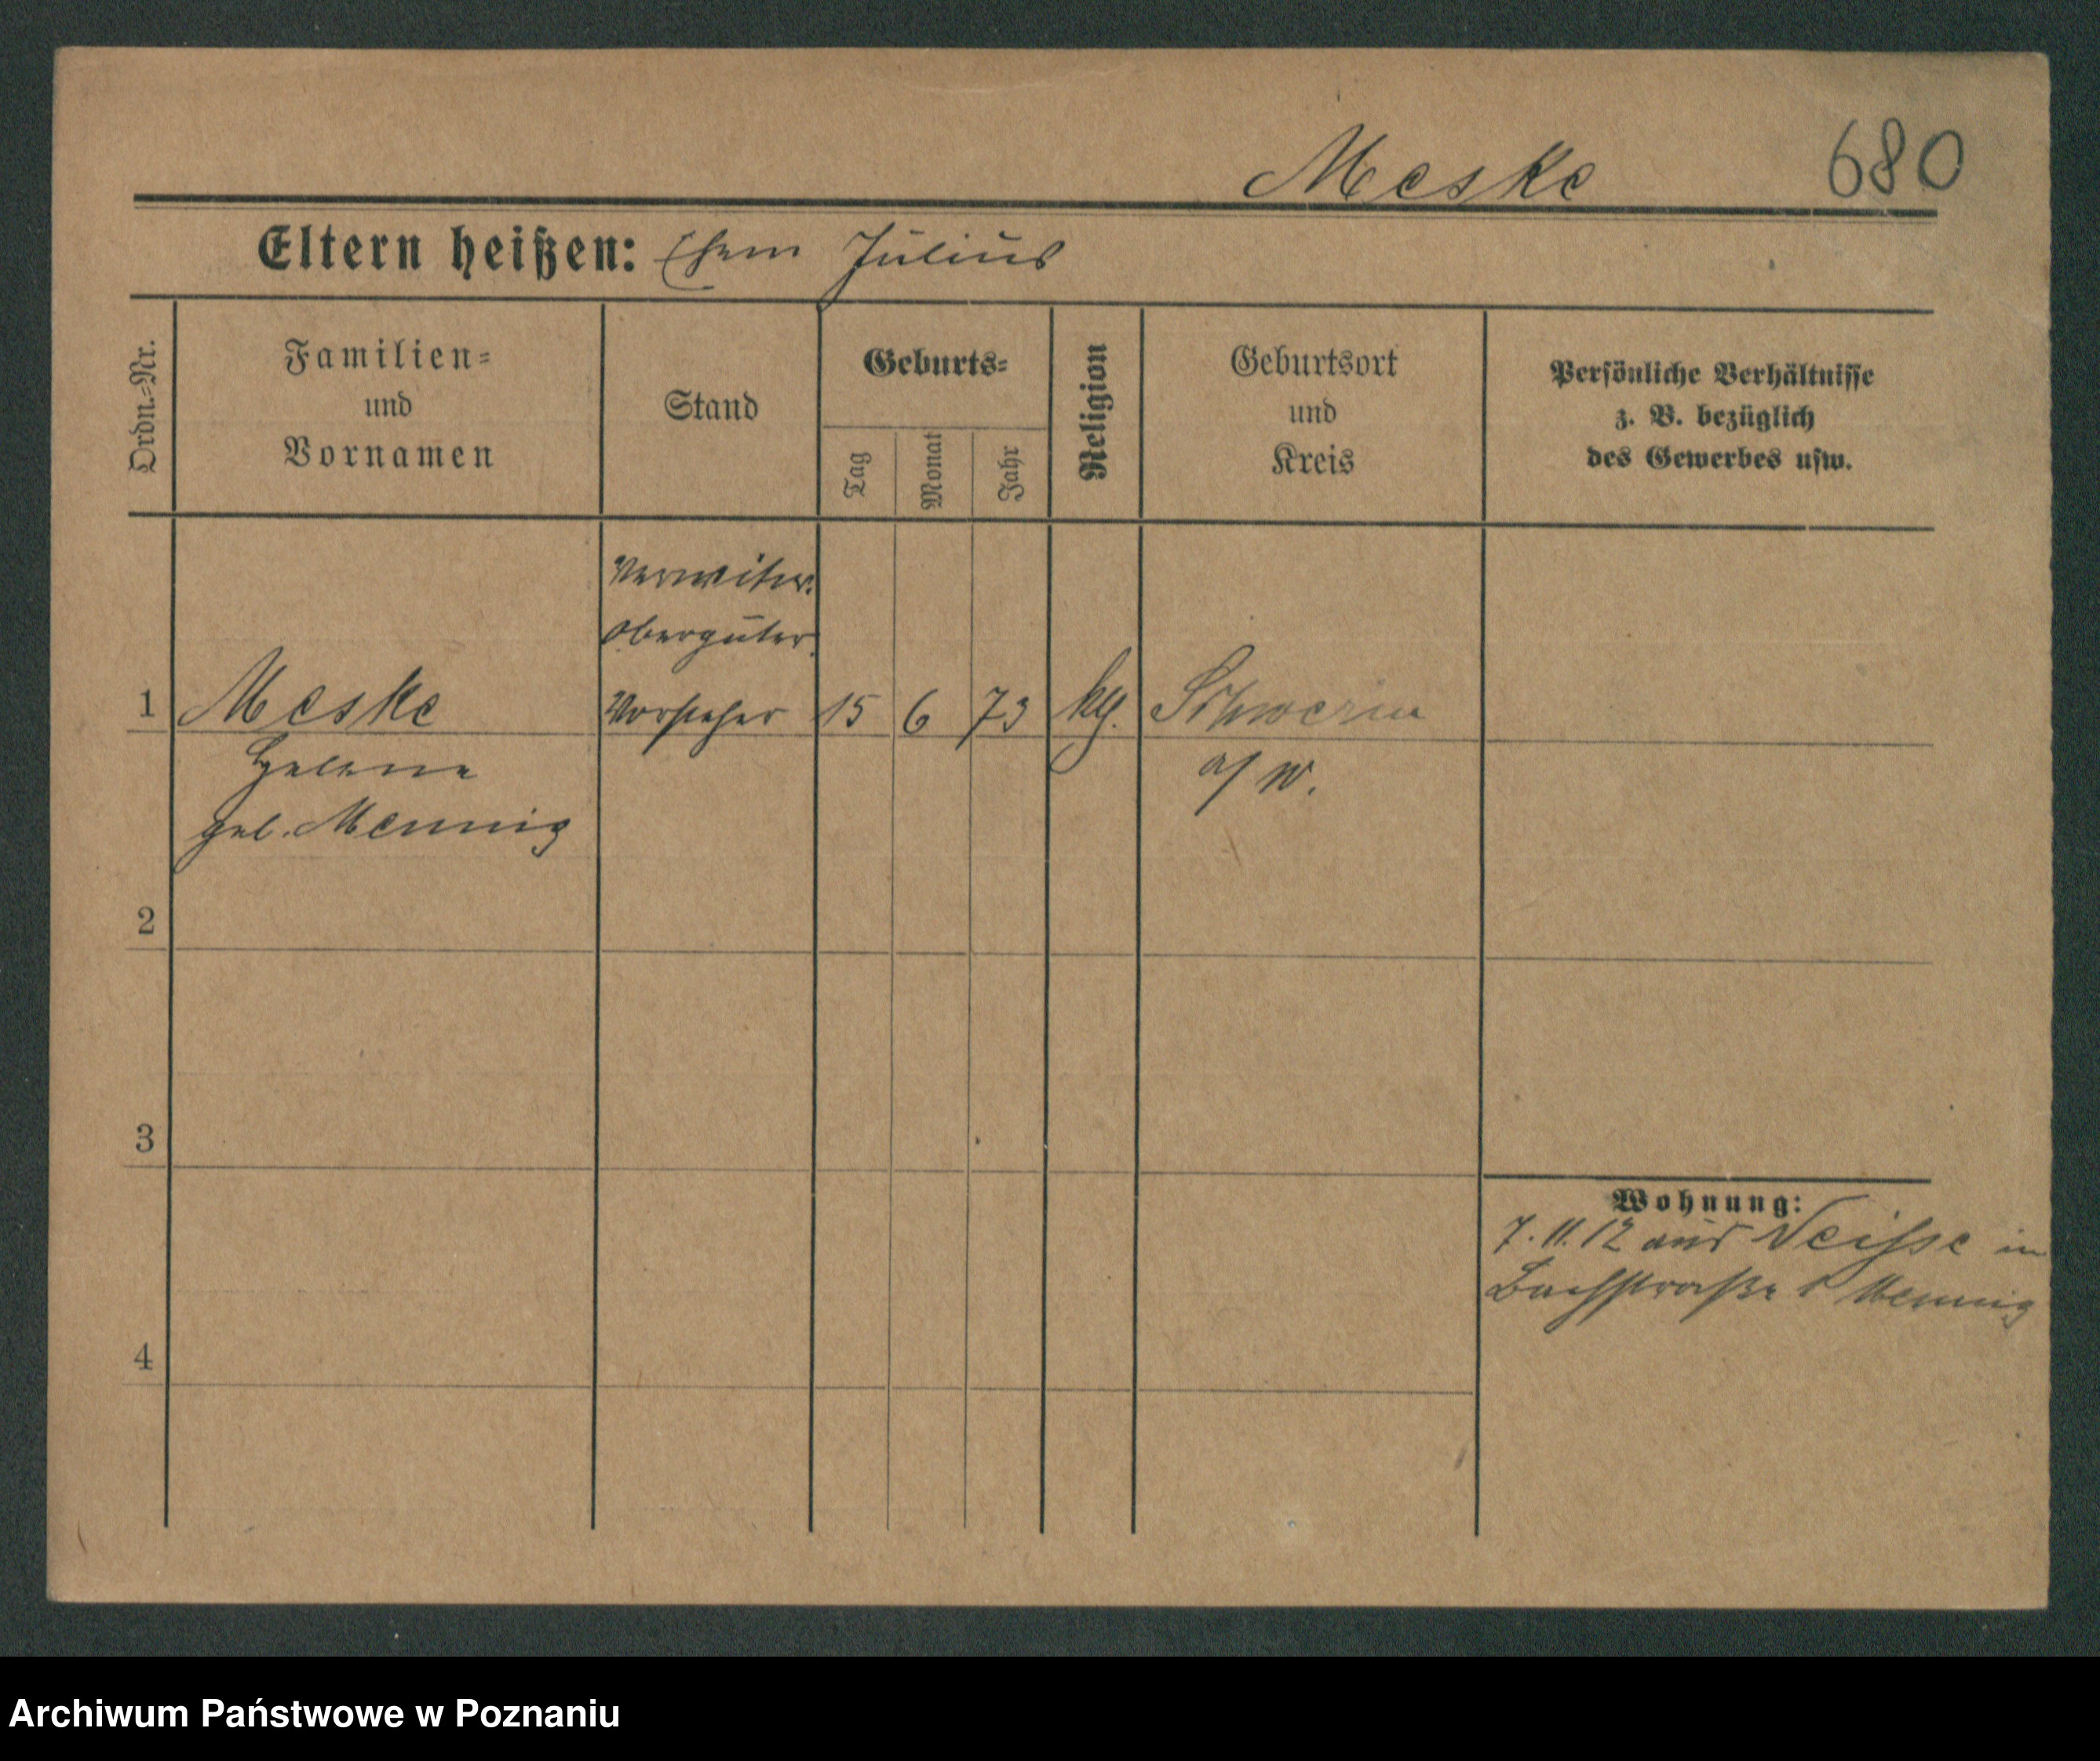 Meske
680
Eltern heißen: Julius
Ordn.-Nr.
Familien-
und
Vornamen
Stand
Geburts-
Tag
Monat
Jahr
Religion
Geburtsort
und
Kreis
Persönliche Verhältnisse
z. B. bezüglich
des Gewerbes usw.
verwitw.
Obergüter
1 Meske Vorsteher 15 6 73 Schwerin
Helene a/W.
geb. Mennig
2
3
4
Wohnung:
7.11.12 aus Neisse in
Bachstraße Mennig
Archiwum Państwowe w Poznaniu